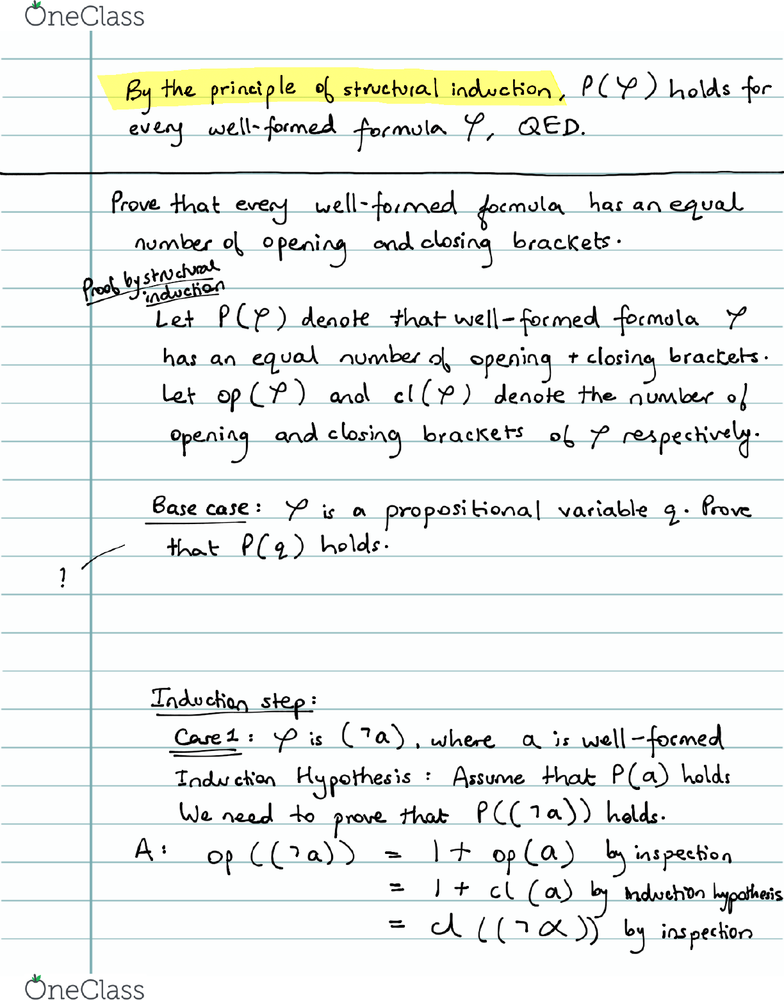 OneClass
By the principle of structural induction, P(φ) holds for
every well-formed formula φ, QED.
Prove that every well-formed formula has an equal
number of opening and closing brackets.
Proof by structural
induction
Let P(φ) denote that well-formed formula φ
has an equal number of opening + closing brackets.
Let op(φ) and cl(φ) denote the number of
opening and closing brackets of φ respectively.
Base case: φ is a propositional variable q. Prove
that P(q) holds.
?
Induction step:
Case 1: φ is (¬a), where a is well-formed
Induction Hypothesis: Assume that P(a) holds
We need to prove that P((¬a)) holds.
A: op((¬a)) = 1 + op(a) by inspection
= 1 + cl(a) by induction hypothesis
= cl((¬α)) by inspection
OneClass